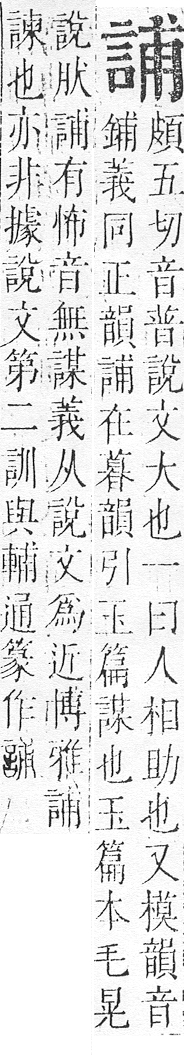 誧
頗五切音普說文大也一曰人相助也又模韻音
鋪義同正韻誧在暮韻引玉篇謀也玉篇本毛晃
說肰誧有怖音無謀義从說文爲近博雅誧
諫也亦非據說文第二訓與輔通篆作誧